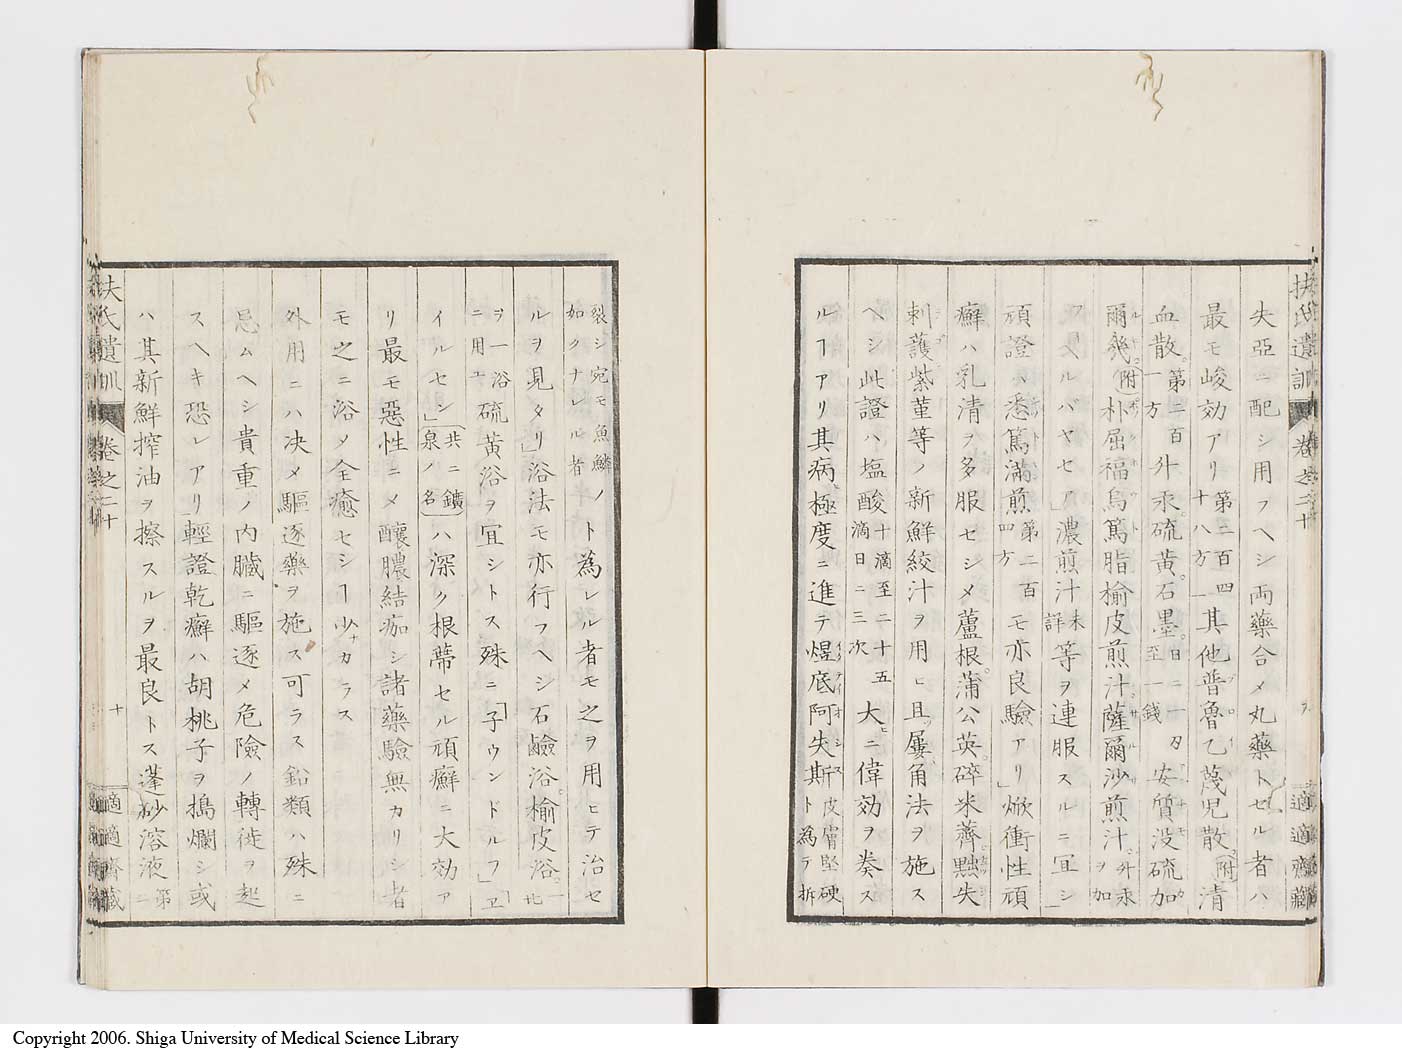 扶氏遺訓 巻之二十 適適齋藏
失亞ニ配シ用フヘシ両藥合メ丸藥トセル者ハ
最モ峻効アリ第二百四十八方」其他普魯乙蔑児散(附)清
血散。第二百一方外汞。硫黄。石墨。日ニ一刄至一錢安質没硫加
爾幾。(附)朴屈福烏篤脂榆皮煎汁薩爾沙煎汁。外汞ヲ加
フルバヤセア濃煎汁未詳等ヲ連服スルニ冝シ」
頑證ハ悉篤満煎第二百四方モ亦良驗アリ」焮衝性頑
癬ハ乳清ヲ多服セシメ蘆根。蒲公英。碎米薺。黙失
刺護。紫菫等ノ新鮮絞汁ヲ用ヒ且屢角法ヲ施ス
ヘシ此證ハ塩酸十滴至二十五滴日ニ三次大ニ偉効ヲ奏ス
ルヿアリ其病極度ニ進テ煜底阿失斯皮膚堅硬ト為テ拆
裂シ宛モ魚鱗ノ如クナレル者ト為レル者モ之ヲ用ヒテ治セ
ルヲ見タリ」浴法モ亦行フヘシ石鹼浴。榆皮浴。一
ヲ一浴ニ用ユ硫黄浴ヲ冝シトス殊ニ「子ウンドルフ」「ヱ
イルセン」共ニ鑛泉ノ名ハ深ク根蔕セル頑癬ニ大効ア
リ最モ惡性ニメ釀膿結痂シ諸藥驗無カリシ者
モ之ニ浴メ全癒セシヿ少ナカラス
外用ニハ决メ驅逐藥ヲ施ス可ラス鉛類ハ殊ニ
忌ムヘシ貴重ノ内臓ニ驅逐メ危險ノ轉徙ヲ起
スヘキ恐レアリ」輕證乾癬ハ胡桃子ヲ搗爛シ或
ハ其新鮮搾油ヲ擦スルヲ最良トス蓬砂溶液第二
扶氏遺訓 巻之二十 十 適適齋藏
Copyright 2006. Shiga University of Medical Science Library